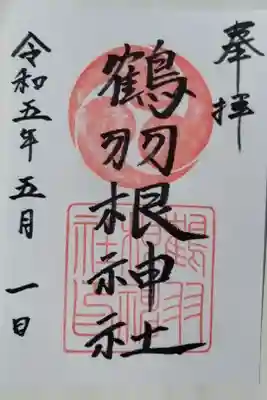 奉拝
鶴羽根神社
令和五年五月一日